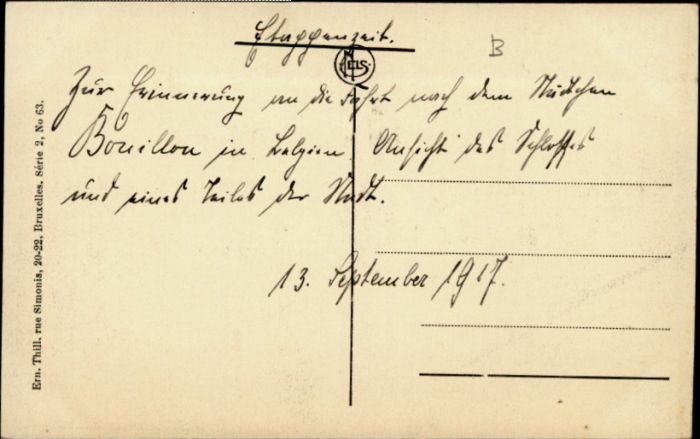 Etappenzeit.
B
NELS
Zur Erinnerung an die Fahrt nach dem Städtchen
Bouillon in Belgien. Ansicht des Schlosses
und eines Teiles der Stadt.
13. September 1917.
Ern. Thill. rue Simonis, 20-22, Bruxelles. Série 2, No 63.